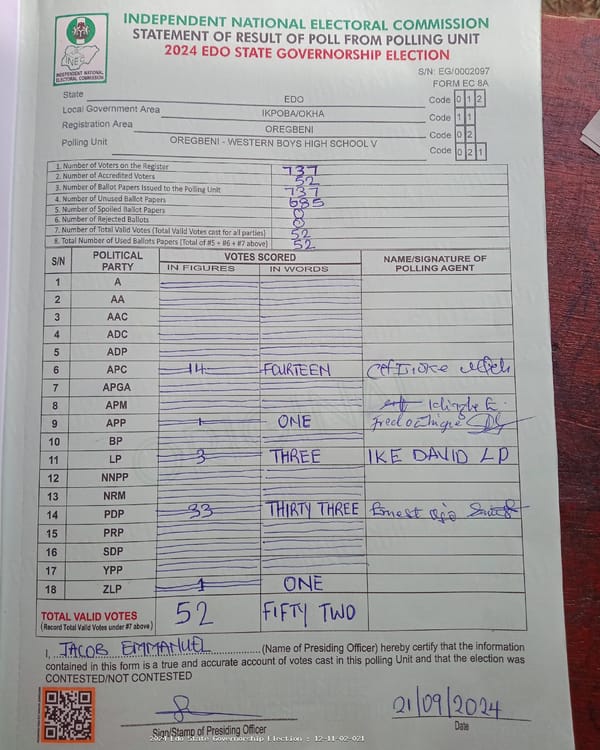 INDEPENDENT NATIONAL ELECTORAL COMMISSION
STATEMENT OF RESULT OF POLL FROM POLLING UNIT
2024 EDO STATE GOVERNORSHIP ELECTION
INDEPENDENT NATIONAL
ELECTORAL COMMISSION
S/N: EG/0002097
FORM EC 8A
State EDO Code 0 1 2
Local Government Area IKPOBA/OKHA Code 1 1
Registration Area OREGBENI Code 0 2
Polling Unit OREGBENI - WESTERN BOYS HIGH SCHOOL V Code 0 2 1
1. Number of Voters on the Register 737
2. Number of Accredited Voters 52
3. Number of Ballot Papers Issued to the Polling Unit 737
4. Number of Unused Ballot Papers 685
5. Number of Spoiled Ballot Papers 0
6. Number of Rejected Ballots 0
7. Number of Total Valid Votes (Total Valid Votes cast for all parties) 52
8. Total Number of Used Ballots Papers (Total of #5 + #6 + #7 above) 52
S/N POLITICAL PARTY VOTES SCORED NAME/SIGNATURE OF POLLING AGENT
IN FIGURES IN WORDS
1 A
2 AA
3 AAC
4 ADC
5 ADP
6 APC 14 FOURTEEN
7 APGA
8 APM
9 APP 1 ONE
10 BP
11 LP 3 THREE IKE DAVID LP
12 NNPP
13 NRM
14 PDP 33 THIRTY THREE Ernest
15 PRP
16 SDP
17 YPP
18 ZLP 1 ONE
TOTAL VALID VOTES 52 FIFTY TWO
(Record Total Valid Votes under #7 above)
I, JACOB EMMANUEL (Name of Presiding Officer) hereby certify that the information
contained in this form is a true and accurate account of votes cast in this polling Unit and that the election was
CONTESTED/NOT CONTESTED
21/09/2024
Sign/Stamp of Presiding Officer Date
2024 Edo State Governorship Election : 12-11-02-021